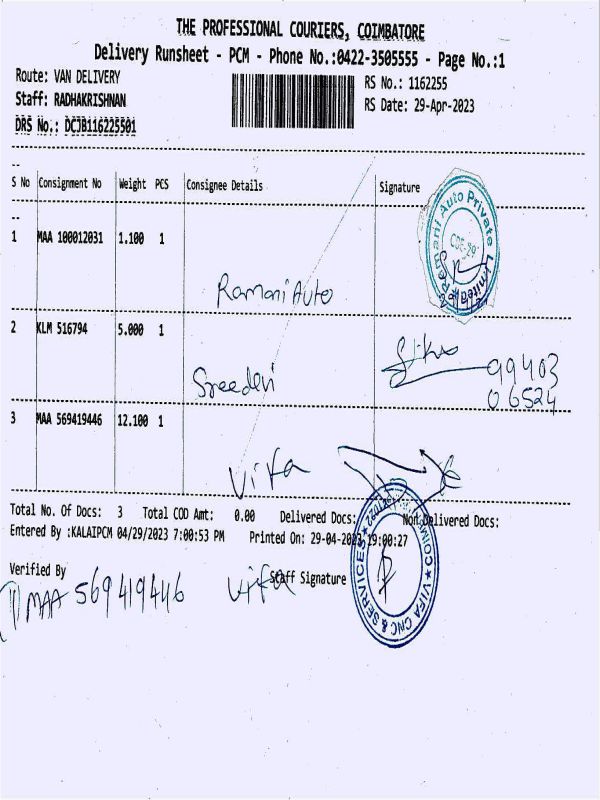 THE PROFESSIONAL COURIERS, COIMBATORE
Delivery Runsheet - PCM - Phone No.:0422-3505555 - Page No.:1
Route: VAN DELIVERY
RS No.: 1162255
Staff: RADHAKRISHNAN
RS Date: 29-Apr-2023
DRS No.: DCJB116225501
S No Consignment No Weight PCS Consignee Details Signature
1 MAA 100012031 1.100 1
Ramani Auto
Ramani Auto Private Limited
CBE-29
2 KLM 516794 5.000 1
Sreedevi
99403
06524
3 MAA 569419446 12.100 1
Vifa
Total No. Of Docs: 3 Total COD Amt: 0.00 Delivered Docs: Non Delivered Docs:
Entered By :KALAIPCM 04/29/2023 7:00:53 PM Printed On: 29-04-2023 19:00:27
Verified By
Staff Signature
MAA 569419446 Vifa
VIFA CNC & SERVICES